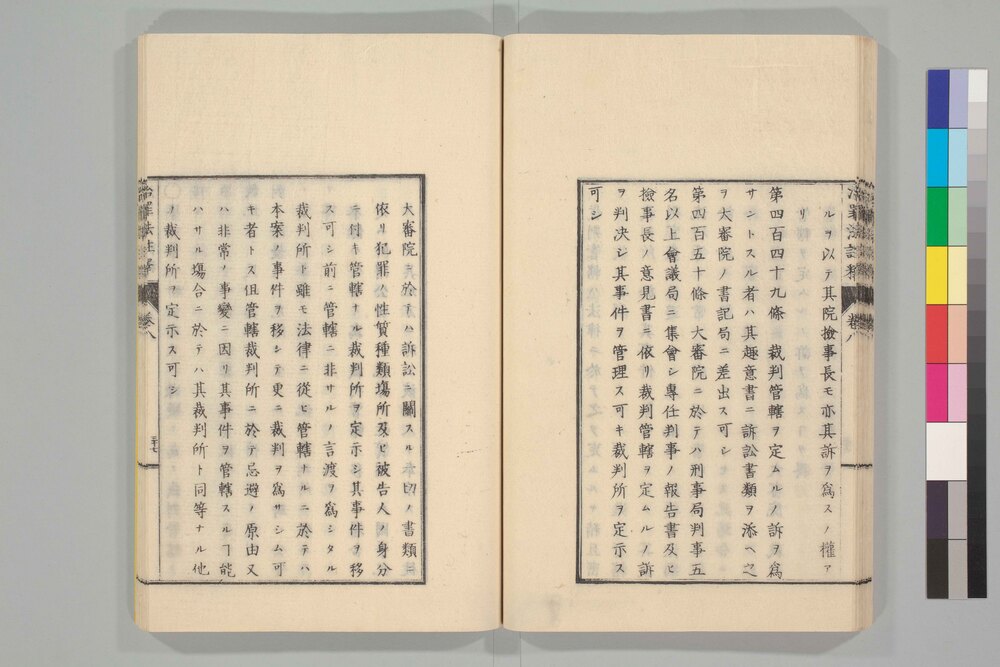 ルヲ以テ其院撿事長モ亦其訴ヲ爲スノ權ア
リ
第四百四十九條 裁判管轄ヲ定ムルノ訴ヲ爲
サントスル者ハ其趣意書ニ訴訟書類ヲ添ヘ之
ヲ大審院ノ書記局ニ差出ス可シ
第四百五十條 大審院ニ於テハ刑事局判事五
名以上會議局ニ集會シ專任判事ノ報告書及ヒ
撿事長ノ意見書ニ依リ裁判管轄ヲ定ムルノ訴
ヲ判决シ其事件ヲ管理ス可キ裁判所ヲ定示ス
可シ
大審院ニ於テハ訴訟ニ關スル本案ノ書類ニ
依リ犯罪ノ性質種類塲所及ヒ被告人ノ身分
ニ付キ管轄ナル裁判所ヲ定示シ其事件ヲ移
ス可シ前ニ管轄ニ非サルノ言渡ヲ爲シタル
裁判所ト雖モ法律ニ從ヒ管轄ナルニ於テハ
本案ノ事件ヲ移シテ更ニ裁判ヲ爲サシム可
キ者トス但管轄裁判所ニ於テ忌避ノ原由又
ハ非常ノ事變ニ因リ其事件ヲ管轄スルヿ能
ハサル塲合ニ於テハ其裁判所ト同等ナル他
ノ裁判所ヲ定示ス可シ
治罪法註釋 卷八